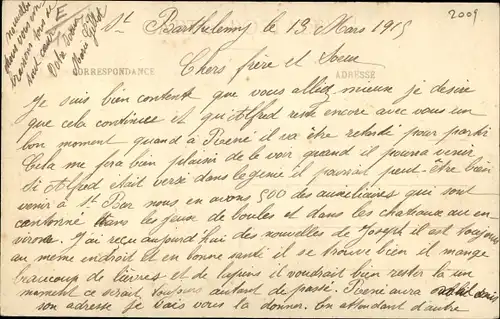 2009
St Barthelemy le 13 Mars 1915
Chers frère et Soeur
CORRESPONDANCE
ADRESSE
Je suis bien contente que vous alliez mieux je desire
que cela continuee et qu'Alfred reste encore avec vous un
bon moment quand à René il va être retardé pour partir
Cela me fera bien plaisir de le voir quand il pourra venir
Si Alfred etait versé dans le genie il pourrait peut-être bien
venir à St Bar nous en avons 500 des auxiliaires qui sont
cantonné dans les jeux de boules et dans les chateaux au en
virons. J'ai reçu aujourd'hui des nouvelles de Joseph il est toujours
au meme endroit et en bonne santé il se trouve bien il mange
beaucoup de lièvres et de lapins il voudrait bien rester là un
moment ce serait toujours autant de passé. René aura
son adresse je vais vous la donner. En attendant d'autre
nouvelles
vous
tout coeur
Marie Gillot